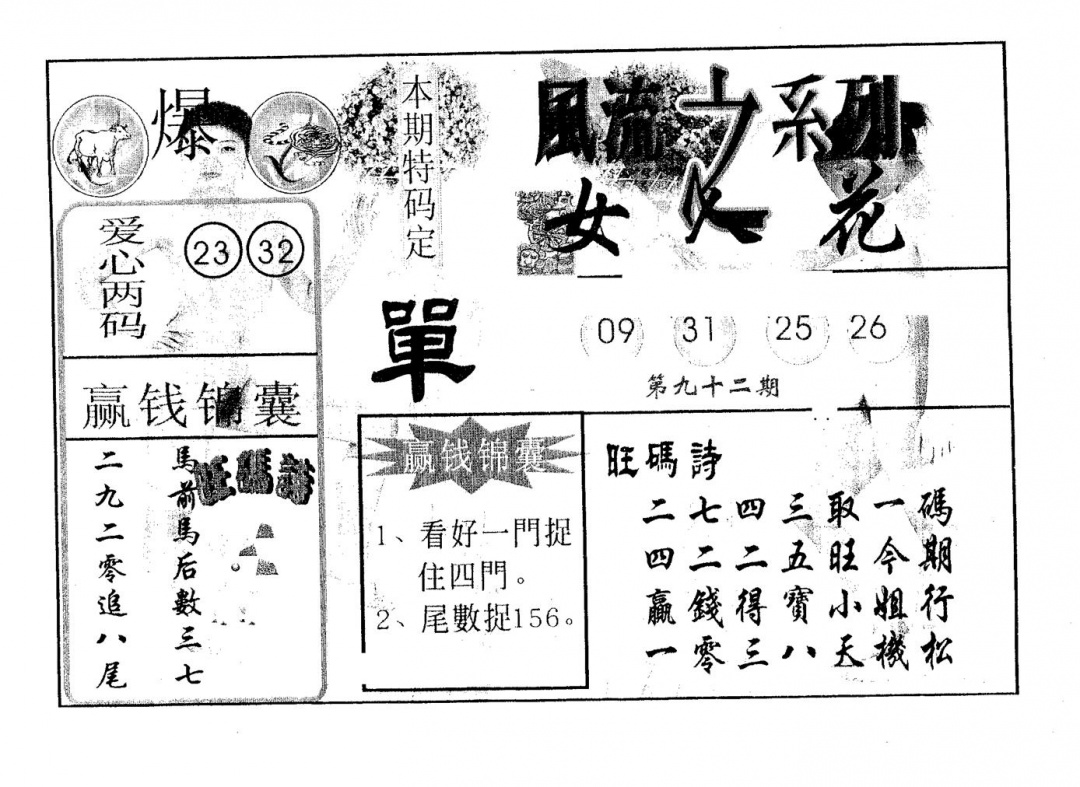 爆
爱心两码
23 32
赢钱锦囊
馬前馬后數三七
二九二零追八尾
旺碼詩
本期特码定
單
風流之系列
女人花
09 31 25 26
第九十二期
赢钱锦囊
1、看好一門捉
住四門。
2、尾數捉156。
旺碼詩
二七四三取一碼
四二二五旺今期
贏錢得寶小姐行
一零三八天機松